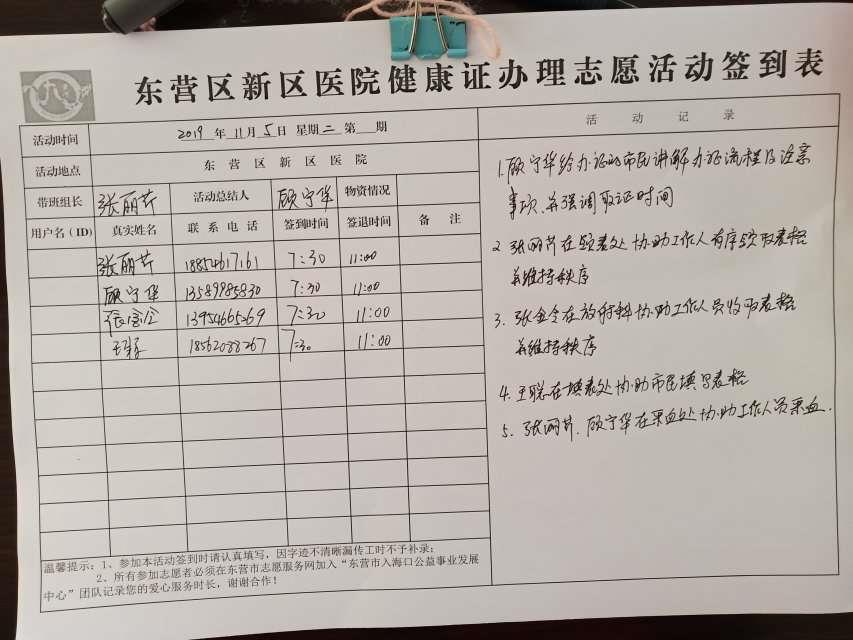 东营区新区医院健康证办理志愿活动签到表
活动时间 2019 年 11 月 5 日 星期二 第 期
活动地点 东营区新区医院
带班组长 张丽芹 活动总结人 顾宁华 物资情况
用户名(ID) 真实姓名 联系电话 签到时间 签退时间 备注
张丽芹 18854617161 7:30 11:00
顾宁华 13589985830 7:30 11:00
13954665269 7:30 11:00
18562088267 7:30 11:00
温馨提示:1、参加本活动签到时请认真填写,因字迹不清晰漏传工时不予补录;
2、所有参加志愿者必须在东营市志愿服务网加入“东营市入海口公益事业发展
中心”团队记录您的爱心服务时长,谢谢合作!
活动记录
1.顾宁华给办证的市民讲解办证流程及注意
事项,并强调取证时间
2 张丽芹在领表处协助工作人有序领取表格
并维持秩序
3. 张金令在放射科协助工作人员收取表格
并维持秩序
4. 王联在填表处协助市民填写表格
5. 张丽芹.顾宁华在采血处协助工作人员采血.